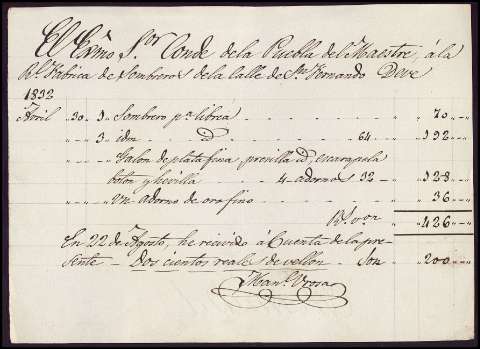 El Exmo Sor Conde de la Puebla del Maestre, á la
Rl. Fabrica de Sombreros de la calle de Sn Fernando Deve
1833
Abril " 30 " 1 Sombrero pa librea " 70 "
" " " 3 idm id 64 " 192 "
" " " Galon de plata fina, presilla id, escarapela
boton y hevilla 4 adornos 32 " 128 "
" " " Un adorno de oro fino " 36 "
Rs. von " 426 "
En 22 de Agosto, he recivido á Cuenta de la pre
sente - Dos cientos reales de vellon - Son " 200 "
Manl. Urosa